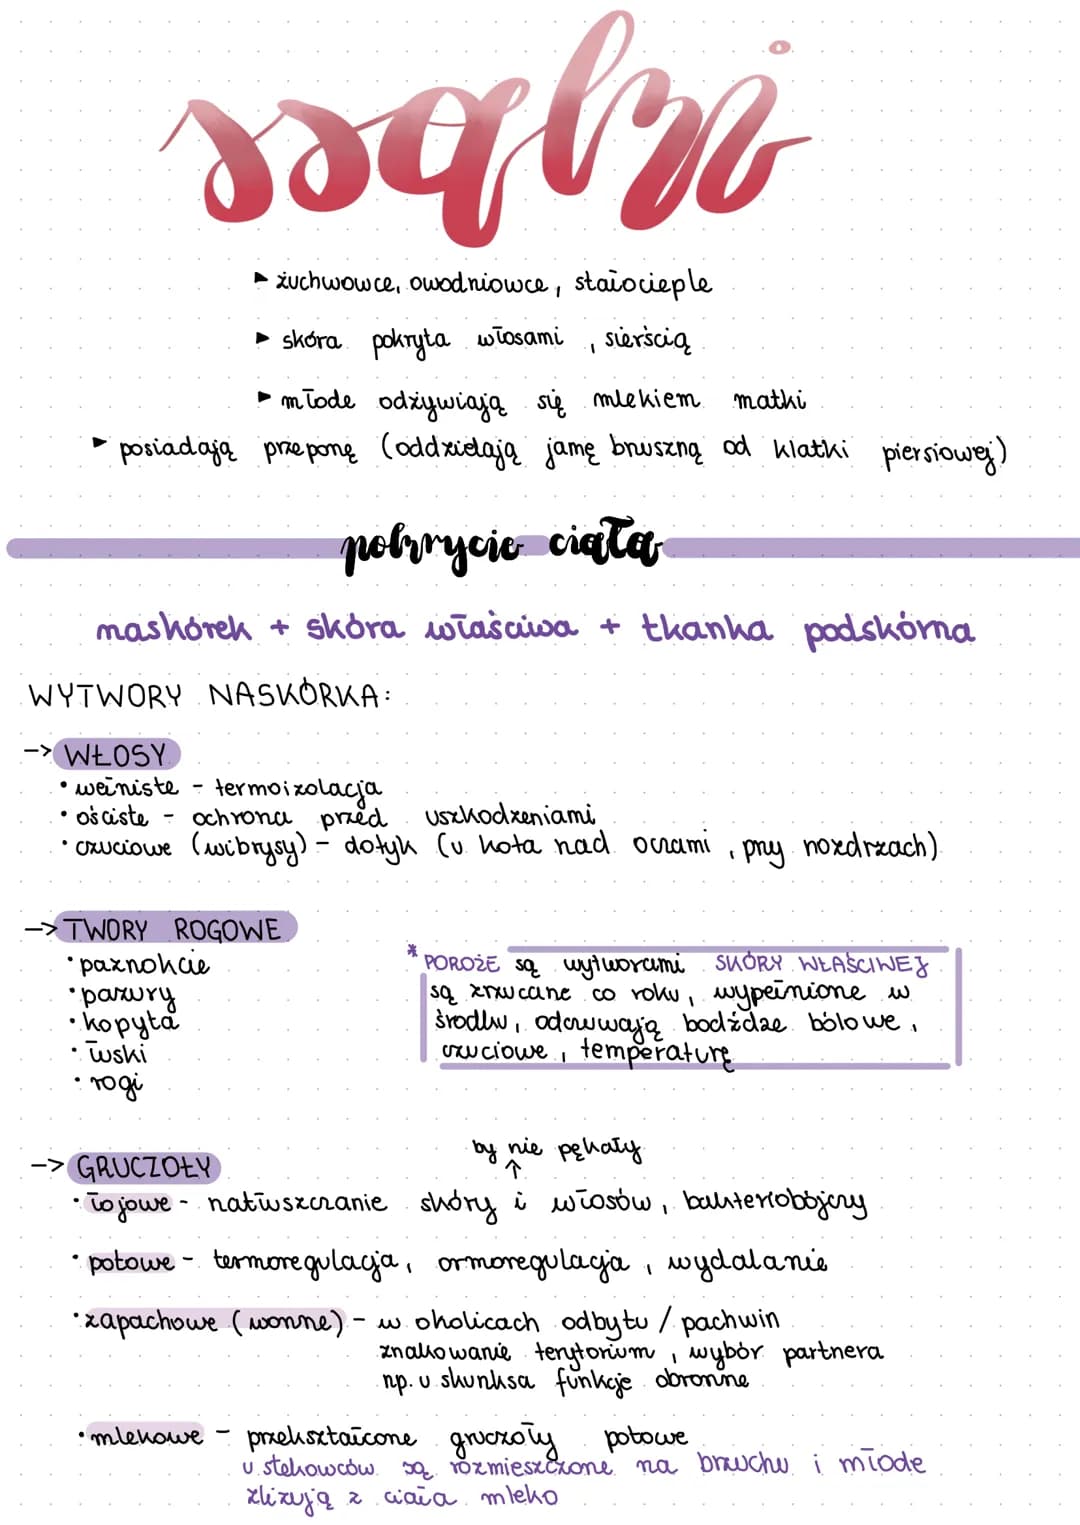 ssaki
▸ żuchwowce, owodniowce, stałocieple
▸ skóra pokryta włosami, sierścią
▸ młode odżywiają się mlekiem matki
▸ posiadają przeponę (oddzielają jamę bruszną od klatki piersiowej)
pokrycie ciała
naskórek + skóra właściwa + tkanka podskórna
WYTWORY NASKÓRKA:
-> WŁOSY
• wełniste - termoizolacja
• ościste - ochrona przed uszkodzeniami
• czuciowe (wibrysy) - dotyk (u kota nad oczami, przy nozdrzach)
-> TWORY ROGOWE
• paznokcie
• pazury
• kopyta
• łuski
• rogi
* POROŻE są wytworami SKÓRY WŁAŚCIWEJ
są zrzucane co roku, wypełnione w
środku, odczuwają bodźdze bólowe,
czuciowe, temperaturę
by nie pękały
↑
-> GRUCZOŁY
• łojowe - natłuszczanie skóry i włosów, bakteriobójczy
• potowe - termoregulacja, ormoregulacja, wydalanie
• zapachowe (wonne) - w okolicach odbytu / pachwin
znakowanie terytorium, wybór partnera
np. u skunksa funkcje obronne
• mlekowe - przekształcone gruczoły potowe
u stekowców są rozmieszczone na brzuchu i młode
zlizują z ciała mleko